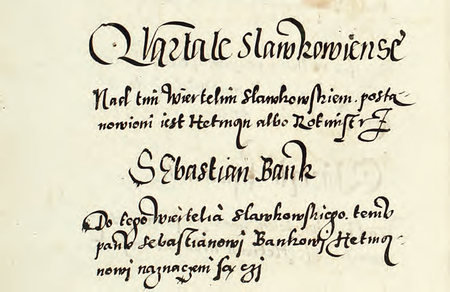 Qvartale Slawkowiense
Nad tim Wiertelim Slawkowskiem. posta-
nowioni iest Hetman albo Rotmistrz
SEbastian Bank
Do tego wiertelia Slawkowskiego. temu
panu Sebastianowi Bankowi Hetma-
nowi naznaczeni są czi